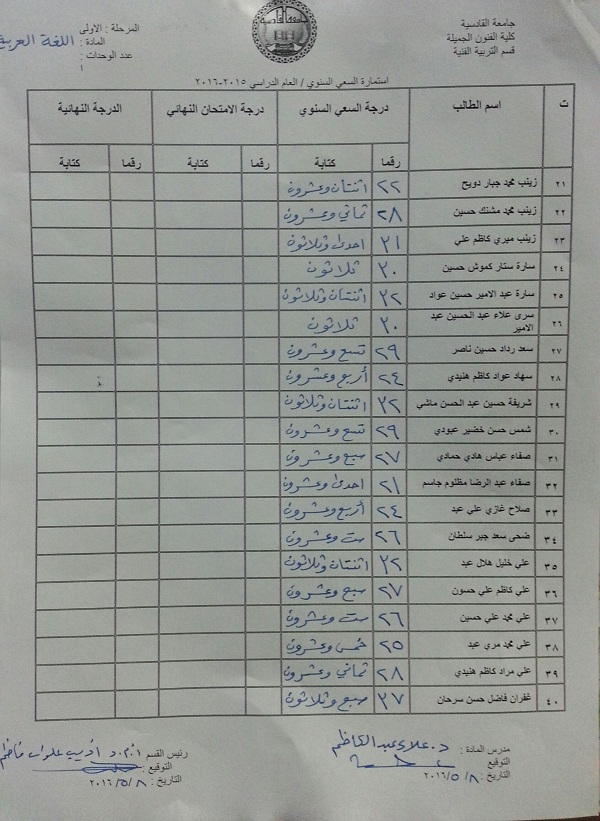 جامعة القادسية
كلية الفنون الجميلة
قسم التربية الفنية
المرحلة : الاولى
المادة : اللغة العربية
عدد الوحدات :
استمارة السعي السنوي / العام الدراسي ٢٠١٥-٢٠١٦
ت اسم الطالب درجة السعي السنوي درجة الامتحان النهائي الدرجة النهائية
رقما كتابة رقما كتابة رقما كتابة
٢١ زينب محمد جبار دويح ٢٢ اثنتان وعشرون
٢٢ زينب محمد مشنك حسين ٢٨ ثماني وعشرون
٢٣ زينب ميري كاظم علي ٣١ احدى وثلاثون
٢٤ سارة ستار كموش حسين ٣٠ ثلاثون
٢٥ سارة عبد الامير حسين عواد ٣٢ اثنتان وثلاثون
٢٦ سرى علاء عبد الحسين عبد الامير ٣٠ ثلاثون
٢٧ سعد رداد حسين ناصر ٢٩ تسع وعشرون
٢٨ سهاد عواد كاظم هنيدي ٢٤ أربع وعشرون
٢٩ شريفة حسين عبد الحسن ماشي ٣٢ اثنتان وثلاثون
٣٠ شمس حسن خضير عبودي ٢٩ تسع وعشرون
٣١ صفاء عباس هادي حمادي ٢٧ سبع وعشرون
٣٢ صفاء عبد الرضا مظلوم جاسم ٢١ احدى وعشرون
٣٣ صلاح غازي علي عبد ٢٤ أربع وعشرون
٣٤ ضحى سعد جبر سلطان ٢٦ ست وعشرون
٣٥ علي خليل هلال عبد ٣٢ اثنتان وثلاثون
٣٦ علي كاظم علي حسون ٢٧ سبع وعشرون
٣٧ علي محمد علي حسين ٢٦ ست وعشرون
٣٨ علي محمد مري عبد ٢٥ خمس وعشرون
٣٩ علي مراد كاظم هنيدي ٢٨ ثماني وعشرون
٤٠ غفران فاضل حسن سرحان ٣٧ سبع وثلاثون
مدرس المادة : د. علاء عبد الكاظم
التوقيع :
التاريخ : ٢٠١٦/٥/٨
رئيس القسم : أ.م.د اديب علوان كاظم
التوقيع :
التاريخ : ٢٠١٦/٥/٨